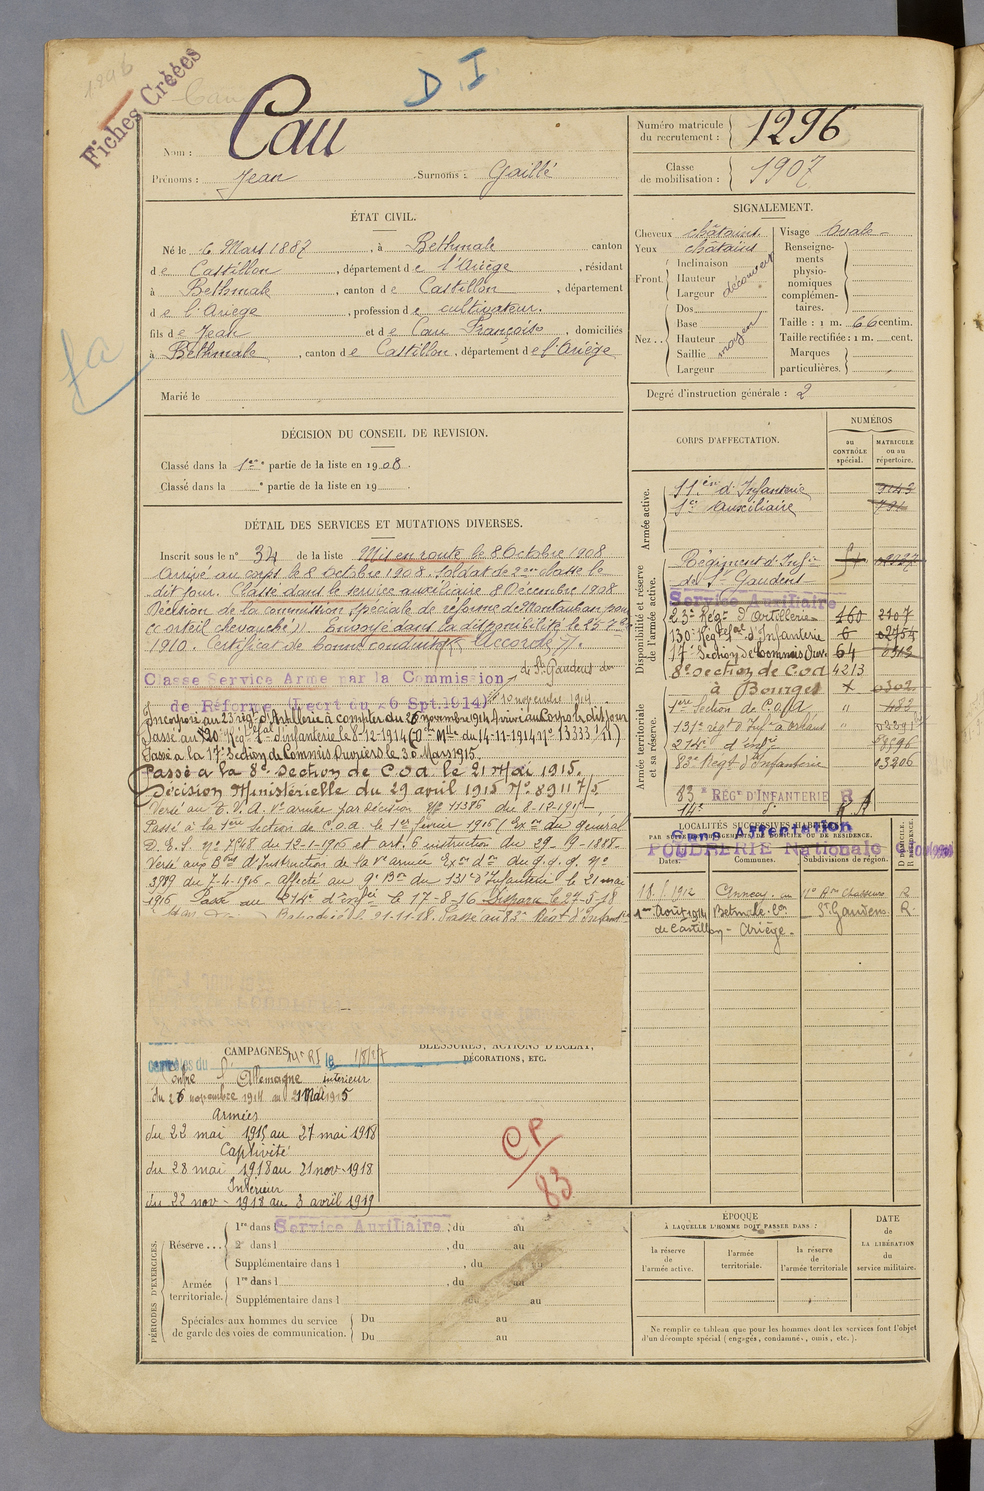 1296
Fiches Créées
D.I.
Nom : Cau
Prénoms : Jean Surnoms : Gaillé
Numéro matricule du recrutement : 1296
Classe de mobilisation : 1907
ÉTAT CIVIL.
Né le 6 Mars 1887, à Bethmale canton
de Castillon, département de l'Ariège, résidant
à Bethmale, canton de Castillon, département
de l'Ariège, profession de cultivateur.
fils de Jean et de Cau Françoise, domiciliés
à Bethmale, canton de Castillon, département de l'Ariège
Marié le
fa
SIGNALEMENT.
Cheveux châtains Visage Ovale
Yeux châtains
Front : Inclinaison
Hauteur
Largeur
découvert
Nez : Dos
Base
Hauteur
Saillie
Largeur
moyen
Renseignements physionomiques complémentaires.
Taille : 1 m. 66 centim.
Taille rectifiée : 1 m. cent.
Marques particulières.
Degré d'instruction générale : 2
DÉCISION DU CONSEIL DE REVISION.
Classé dans la 1ère partie de la liste en 1908.
Classé dans la e partie de la liste en 19
DÉTAIL DES SERVICES ET MUTATIONS DIVERSES.
Inscrit sous le n° 34 de la liste Mis en route le 8 Octobre 1908
Arrivé au corps le 8 octobre 1908. Soldat de 2me classe le
dit jour. Classé dans le service auxiliaire 8 Décembre 1908
Décision de la commission spéciale de réforme de Montauban pour
« orteil chevauché » Envoyé dans la disponibilité le 25 7bre
1910. Certificat de bonne conduite Accordé.
Classé Service Armé par la Commission de St Gaudens du
de Réforme (Décret du 26 Spt.1914) 10 novembre 1914
Incorporé au 23e régt d'Artillerie à compter du 26 novembre 1914 Arrivé au Corps le dit jour
Passé au 130e Régt d'infanterie le 8-12-1914 (Don Mlle du 14-11-1914 n° 13333 1/1)
Passé à la 17e Section de Commis Ouvriers le 30 Mars 1915.
Passé à la 8e Section de C.O.A. le 21 Mai 1915.
Décision Ministérielle du 29 avril 1915 N° 8911 7/5
Versé au T.V.A. Ve armée par décision n° 17386 du 8-12-1915
Passé à la 1ère Section de C.O.A. le 1er février 1916 (Ex on du général
D.E.S. n° 7848 du 12-1-1916 et art. 6 instruction du 29-19-1888.
Versé aux Bons d'Instruction de la Ve armée Exon don du g.q.g. n°
3989 du 7-4-1916 - affecté au 9e Bon du 131e d'Infanterie le 21 mai
1916. Passé au 214e d'infie le 17-8-16 Disparu le 27-5-18
Rapatrié le 21.11.18. Passé au 83e Régt d'Infant
CORPS D'AFFECTATION.
NUMÉROS
au CONTRÔLE spécial.
MATRICULE ou au répertoire.
Armée active.
11ème d'Infanterie
1er Auxiliaire
Disponibilité et réserve de l'armée active.
Régiment d'Infie
de St Gaudens
Service Auxiliaire
23e Régt d'Artillerie 460 2107
130e Régt d'Infanterie 6 02754
17e Section de Commis Ouv. 64 0313
8e Section de C.O.A 4213
à Bourges 0302
Armée territoriale et sa réserve.
1ère Section de C.O.A. " 483
131e régt d'Infie à Orléans " 02391
214e d'infie 03596
83e Régt d'Infanterie 03206
83e RÉGt D'INFANTERIE R A
14e d°
Sans Affectation
POUDRERIE Nationale
LOCALITÉS SUCCESSIVES HABITÉES
PAR SUITE DE CHANGEMENTS DE DOMICILE OU DE RÉSIDENCE.
Dates. Communes. Subdivisions de région. D DOMICILE. R RÉSIDENCE.
1912 Annecy R
1er Août 1914 Betmale Con St Gaudens R
de Castillon - Ariège -
CAMPAGNES.
14e RI le 1/8/27
Contre l'Allemagne Intérieur
du 26 novembre 1914 au 21 Mai 1915
Armées
du 22 mai 1915 au 27 mai 1918
Captivité
du 28 mai 1918 au 21 nov. 1918
Intérieur
du 22 nov - 1918 au 3 avril 1919
BLESSURES, ACTIONS D'ÉCLAT,
DÉCORATIONS, ETC.
CP
83
PÉRIODES D'EXERCICES.
Réserve ... 1re dans l Service Auxiliaire, du au
2e dans l , du au
Supplémentaire dans l , du au
Armée territoriale. 1re dans l , du au
Supplémentaire dans l du au
Spéciales aux hommes du service de garde des voies de communication. Du au
Du au
ÉPOQUE
À LAQUELLE L'HOMME DOIT PASSER DANS :
la réserve de l'armée active.
l'armée territoriale.
la réserve de l'armée territoriale
DATE DE LA LIBÉRATION du service militaire.
Ne remplir ce tableau que pour les hommes dont les services font l'objet
d'un décompte spécial (engagés, condamnés, omis, etc.).